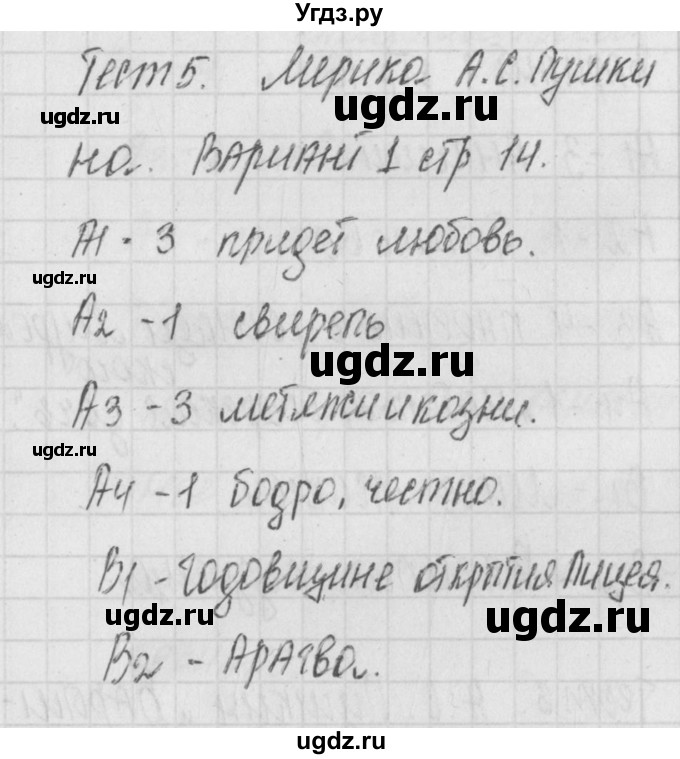 Угдз.ру
Тест 5. Лирика А.С. Пушки
ugdz.ru
ugdz.ru
на. Вариант 1 стр 14.
А1 - 3 придет любовь.
ugdz.ru
ugdz.ru
А2 - 1 свирепь
ugdz.ru
А3 - 3 мятежи и козни.
ugdz.ru
ugdz.ru
А4 - 1 бодро, честно.
В1 - годовщине открытия Лицея.
ugdz.ru
ugdz.ru
В2 - Арагва.
ugdz.ru